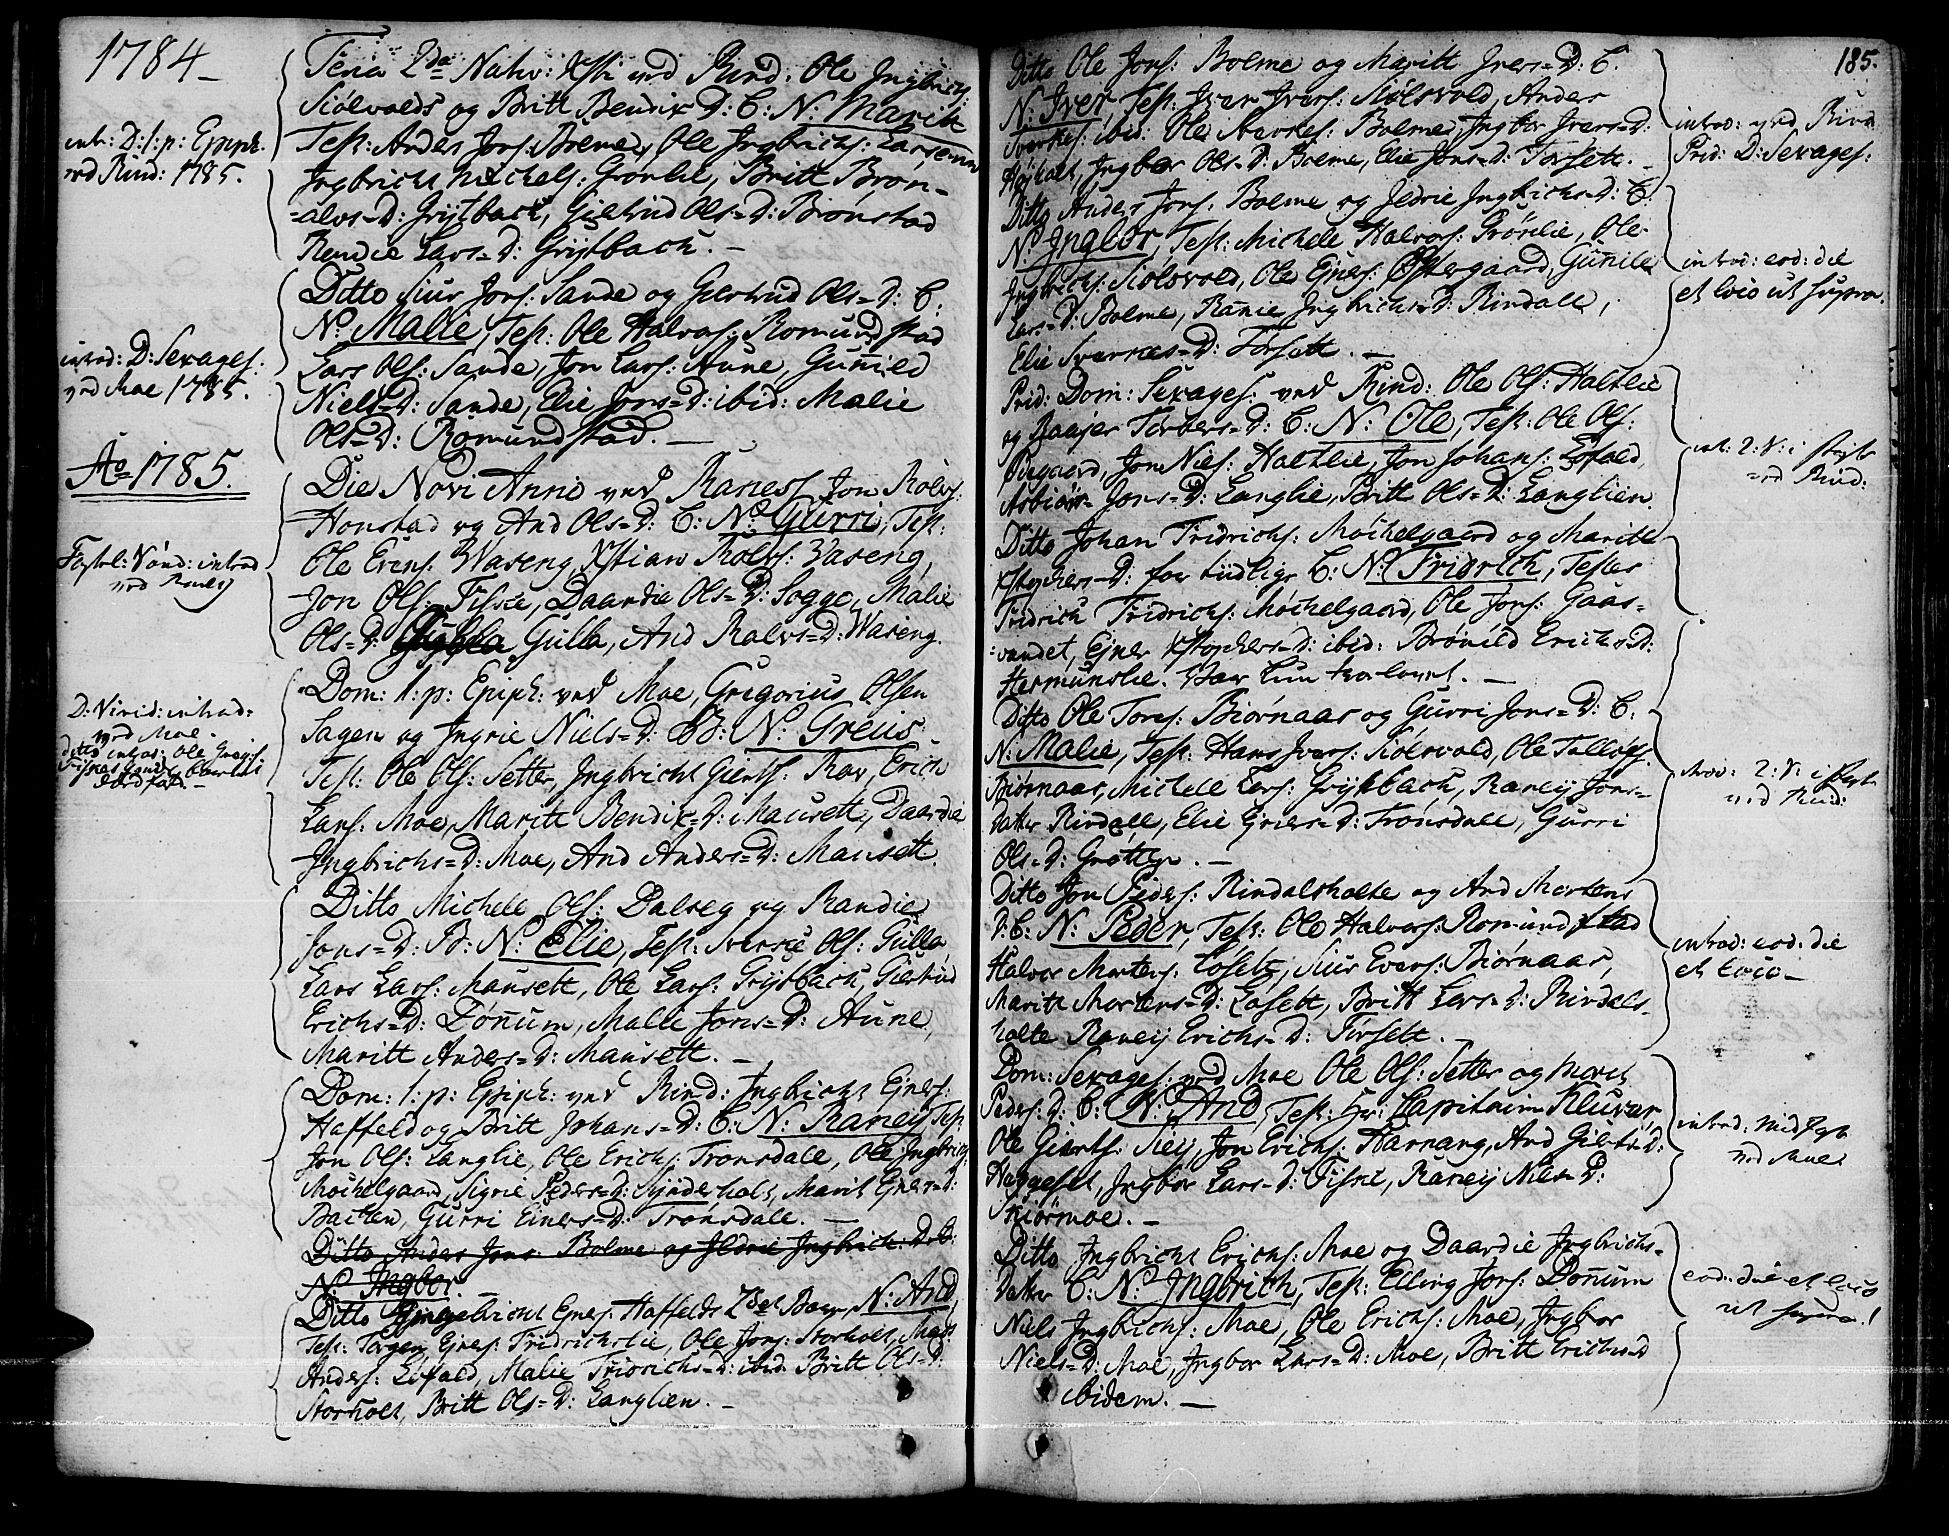 1784
Feria 2da Nativ: Xsti ved Rind: Ole Ingbrichs:
Siölsvolds og Britt Bendix D: C: N: Maritt
Test: Anders Jons: Bolme, Ole Ingbrichs:
Ingbricht Michels: Grönlie, Britt Brön-
-alvs-D: Grÿtbach, Giertrud Ols-D: Brönstad
Rendie Lars-D: Grÿtbach. -
intr: D: 1: p: Epiph:
ved Rind: 1785.
Ditto Siur Jons: Sande og Giertrud Ols-D: C:
N: Malie, Test: Ole Halvors: Romundstad
Lars Ols: Sande, Jon Lars: Aune, Gunild
Niels-D: Sande, Elie Jons-D: ibid: Malie
Ols-D: Romundstad. -
introd: D: Sexages:
ved Moe 1785.
Ao 1785.
Die Novi Anni ved Ranes Jon Rolvs:
Honstad og And Ols-D: C: N: Gurri, Test:
Ole Erichs: Waseng, Xstian Rolvs: Vaseng,
Jon Ols: Fiske, Daardie Ols-D: Sogge, Malie
Ols-D: Gulla, And Ralvs-D: Waseng.
Fastel: Sönd: introd
ved Ranes
Dom: 1: p: Epiph: ved Moe, Gregorius Olsen
Sagen og Ingrie Niels-D: B: N: Greius
Test: Ole Ols: Setter, Ingbricht Gierts: Rav, Erich
Lars: Moe, Maritt Bendix-D: Mausett, Daardie
Ingbrichs-D: Moe, And Anders-D: Mausett.
D: Virid: introd:
ved Moe.
ditto introd: Ole
Ditto Michele Ols: Dalseg og Randie
Jons-D: B: N: Elie, Test: Sverre Ols: Gulla,
Lars Lars: Mausett, Ole Lars: Grÿtbach, Giertrud
Erichs-D: Dönum, Malie Jons-D: Aune,
Maritt Anders-D: Mausett. -
Dom: 1: p: Epiph: ved Rind: Ingbricht Ejners:
Haffeld og Britt Johans-D: C: N: Raneÿ Test:
Jon Ols: Langlie, Ole Erichs: Trönsdall, Ole Ingbrichs:
Möchelgaard, Sigrie Peders-D: Synderholt, Marit Ejners-D:
Bachen, Gurri Einers-D: Trönsdale. -
Ditto Anders Jons: Bolme og Ildrie Ingbrich: D: C:
N: Ingbor.
Ditto Ingebricht Ejners: Haffelds 2det Barn, N: And,
Test: Torger Ejners: Fridrichslie, Ole Jons: Storholt,
Anders: Löfald, Malie Fridrichs-D: ibid: Britt Ols-D:
Storholt, Britt Ols-D: Langlien. -
185.
Ditto Ole Jons: Bolme og Maritt Ivers-D: C.
N: Iver, Test: Iver Ivers: Siölsvold, Anders
Sverkes: ibid: Ole Sverkes: Bolme, Ingbor Ivers-D:
Höjholt, Ingbor Ols-D: Bolme, Elie Jons-D: Torsett. -
introd: ved Rind
Prid: D: Sexages:
Ditto Anders Jons: Bolme og Ildrie Ingbrichs-D: C:
N: Ingbor, Test: Michele Halvors: Prörlie, Ole
Ingbrichs: Siölsvold, Ole Ejners: Østergaard, Gunile
Lars-D: Bolme, Ranie Ingbrichs-D: Rindale,
Elie Sverkes-D: Torsett. -
introd: eod: die
et loco ut supra.
Prid: Dom: Sexages: ved Rind: Ole Ols: Haltlie
og Raajer Torbers-D: C: N: Ole, Test: Ole Ols:
Øregaard, Jon Niels: Haltlie, Jon Johans: Löfald,
Asbiör Jons-D: Langlie, Britt Ols-D: Langlien.
int: 2: S: i faste
ved Rind:
Ditto Johan Fridrichs: Möchelgaard og Maritt
Xstophers-D: for tiidlig C: N: Fridrich, Testes
Fridrich Fridrichs: Möchelgaard, Ole Jons: Gaas-
-vandet, Ejner Xstophers-D: ibid: Brönild Erichs-D:
Hermunslie. Bær hun trolovet. -
Ditto Ole Tores: Biörnaas og Gurri Jons-D: C:
N: Malie, Test: Hans Ivers: Siölsvold, Ole Tollofs:
Biörnaas, Michele Lars: Grÿtbach, Raneÿ Jons-
Datter Rindale, Elie Grers-D: Trönsdale, Gurri
Ols-D: Grötte. -
introd: 2: S: i fast
ved Rind:
Ditto Jon Peders: Rindalsholte og And Mortens
D: C: N: Peder, Test: Ole Halvors: Romundstad
Halvor Mortens: Losett, Siur Evers: Biörnaas,
Maritt Mortens-D: Losett, Britt Lars-D: Rindals-
holte, Raneÿ Erichs-D: Torsett. -
introd: eod: die
et loco -
Dom: Sexages: ved Moe Ole Ols: Setter og Marit
Peders: D: C: N: And, Test: Hr: Capitain Kluver,
Ole Gierts: Reÿ, Jon Erichs: Harnang, And Gierts-D:
Haggeset, Ingbor Lars-D: Fiske, Raneÿ Niels-D:
Skiörmoe. -
introd: Midfast
ved Moe
Ditto Ingbricht Erichs: Moe og Daardie Ingbrichs-
Datter C: N: Ingbrich, Test: Elling Jons: Dönum
Niels Ingbrichs: Moe, Ole Erichs: Moe, Ingbor
Niels-D: Moe, Ingbor Lars-D: Moe, Britt Erichs-D
ibidem. -
eod: die et loco
ut supra!